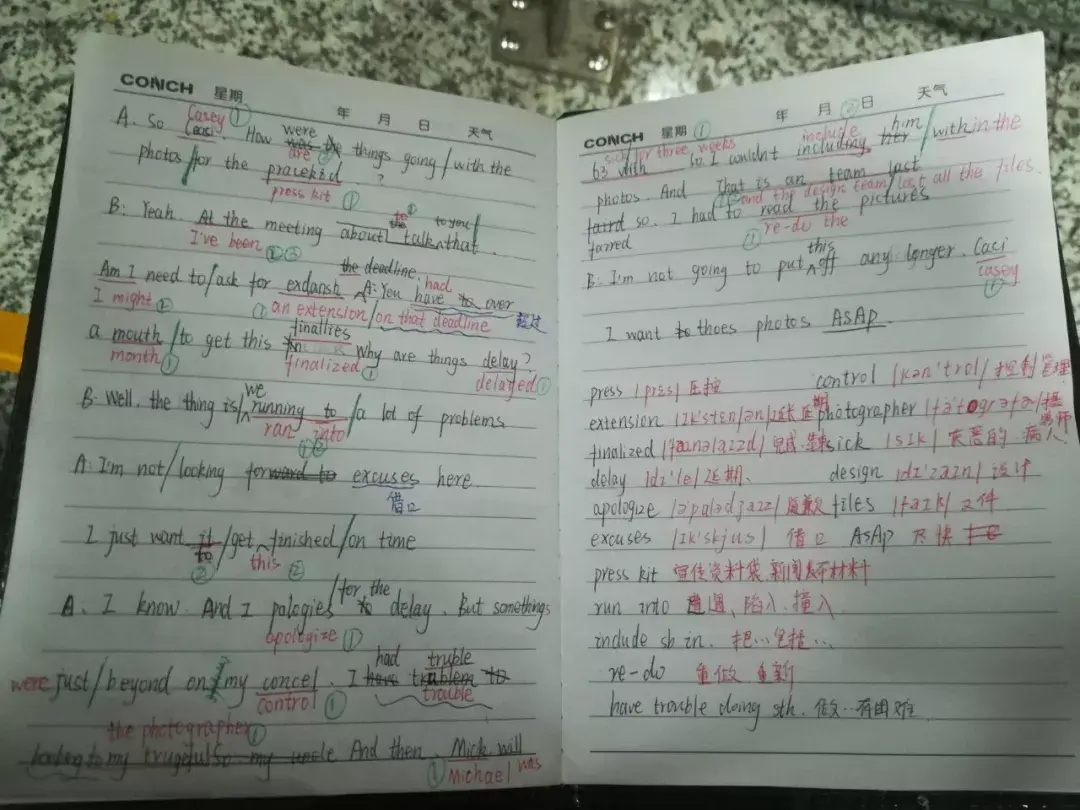 CONCH 星期 ① 年 月 日 天气
Casey were
A. So Caci. How was the things going / with the
are ②
photos / for the pracekid ?
press kit ①
B: Yeah. At the meeting about talk that to you
I've been ② ③
the deadline. had
Am I need to / ask for exdansh A: You have to over
I might ② ① an extension / on that deadline 超过
a mouth / to get this finallies why are things delay?
month ① finalized ① delayed ①
we
B: Well. the thing is / running to / a lot of problems
ran into
① ②
A: I'm not / looking forward to excuses here.
借口
I just want it / get finished / on time
to this ②
②
for the
A. I know. And I pologies to delay. But somethings
apologize ①
had truble
were just / beyond on my concel. I have trablem to
control ① trouble
the photographer ①
my uncle And then. Mick will
① Michael was
CONCH 星期 ① 年 月 ② 日 天气
sick for three weeks include him
so I couldnt including her / with in the
photos. And That is an team last
and the design team / lost all the files.
so. I had to read the pictures
① re-do the
this
B: I'm not going to put off any longer. Caci
casey
①
I want to thoes photos ASAP
press /pres/ 压按 control /kən'trol/ 控制 管理
extension /ɪk'stenʃən/ 延长 延期 photographer /fə'tɒgrəfə/ 摄影师
finalized /faɪnəlaɪzd/ 完成 sick /sɪk/ 病人
delay /dɪ'le/ 延期、 design /dɪ'zaɪn/ 设计
apologize /ə'pɑlədʒaɪz/ 道歉 files /faɪl/ 文件
excuses /ɪk'skjus/ 借口 ASAP 尽快
press kit 宣传资料袋. 新闻发布材料
run into 遭遇、陷入. 撞入
include sb in. 把…包括…
re-do 重做. 重新
have trouble doing sth. 做…有困难